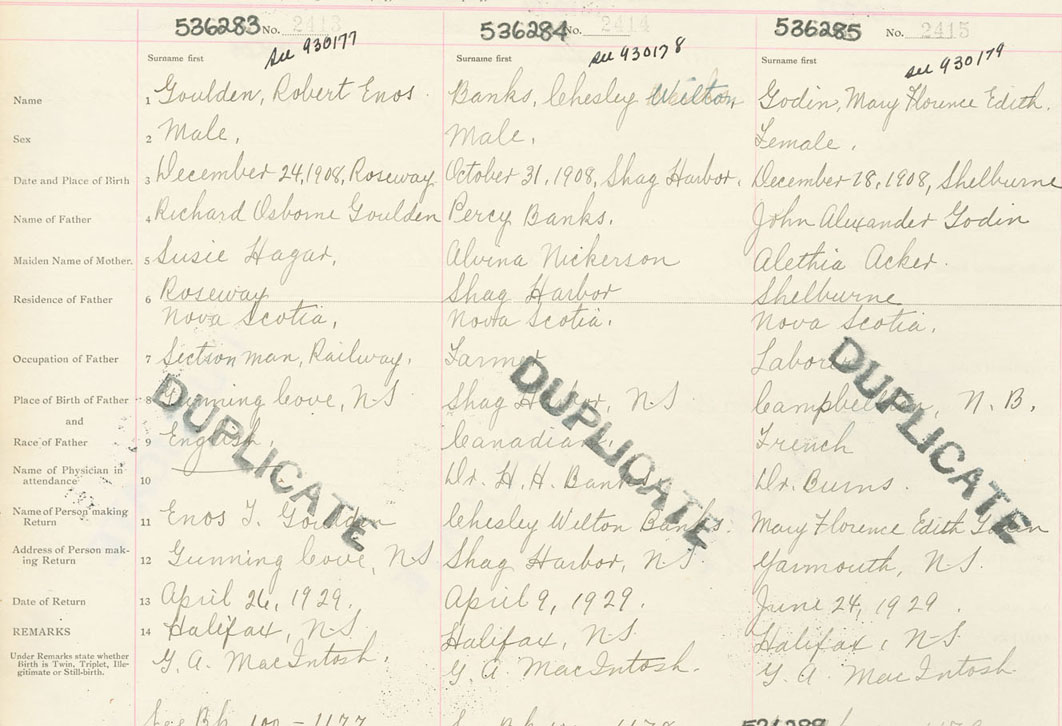 536283 No. 2413
see 930177
536284 No. 2414
see 930178
536285 No. 2415
see 930179
Surname first
Surname first
Surname first
Name 1 Goulden, Robert Enos. Banks, Chesley Wilton Godin, Mary Florence Edith.
Sex 2 Male, Male, Female,
Date and Place of Birth 3 December 24, 1908, Roseway October 31, 1908, Shag Harbor. December 18, 1908, Shelburne
Name of Father 4 Richard Osborne Goulden Percy Banks. John Alexander Godin
Maiden Name of Mother. 5 Susie Hagar, Alvina Nickerson Alethia Acker.
Residence of Father 6 Roseway Shag Harbor Shelburne
Nova Scotia, Nova Scotia. Nova Scotia,
Occupation of Father 7 Section man, Railway. Farmer Laborer
Place of Birth of Father 8 Gunning Cove, NS Shag Harbor, NS N.B.
and
Race of Father 9 English, Canadian. French
Name of Physician in
attendance 10 Dr. H. H. Banks Dr. Burns.
Name of Person making
Return 11 Enos Goulden Chesley Wilton Banks. Mary Florence Edith Godin
Address of Person mak-
ing Return 12 Gunning Cove, NS Shag Harbor, NS. Yarmouth, NS.
Date of Return 13 April 26, 1929. April 9, 1929. June 24, 1929.
REMARKS 14 Halifax, NS. Halifax, NS. Halifax, NS.
Under Remarks state whether
Birth is Twin, Triplet, Ille-
gitimate or Still-birth.
G. A. MacIntosh. G. A. MacIntosh. G. A. MacIntosh.
DUPLICATE
DUPLICATE
DUPLICATE